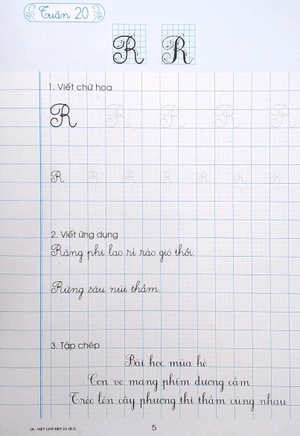 Tuần 20
R R
1. Viết chữ hoa
R R R R R R
R R R R R R R
2. Viết ứng dụng
Rặng phi lao rì rào gió thổi.
Rừng sâu núi thẳm.
3. Tập chép
Bài học mùa hè
Con ve mang phím dương cầm
Trèo lên cây phượng thì thầm cùng nhau
5